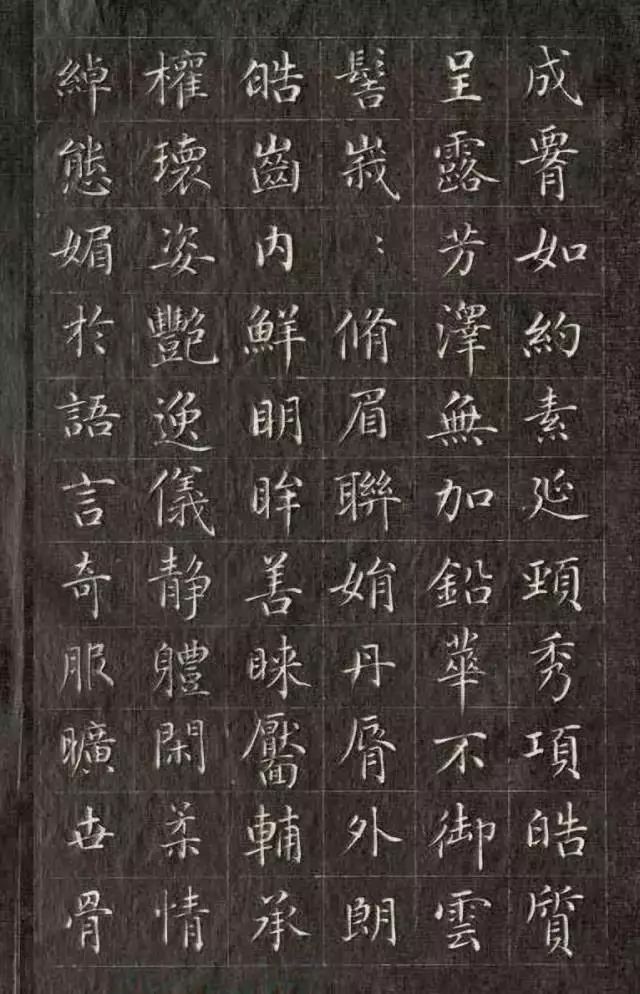 成脣如約素延頸秀項皓質
呈露芳澤無加鉛華不御雲
髻峩〻脩眉聯娟丹脣外朗
皓齒內鮮明眸善睞靨輔承
權瓌姿艷逸儀靜體閑柔情
綽態媚於語言奇服曠世骨